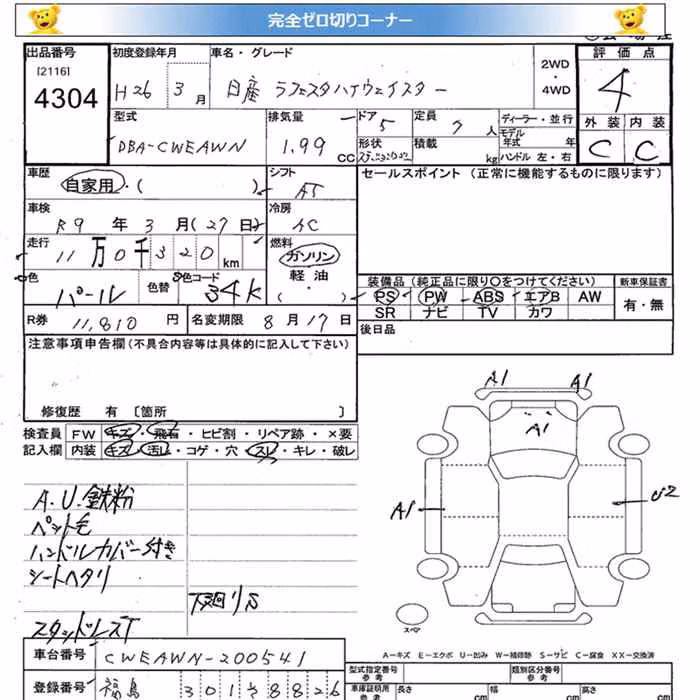 完全ゼロ切りコーナー
出品番号 初度登録年月 車名・グレード 2WD・4WD 評価点
[2116]
4304 H26 3月 日産 ラフェスタハイウェイスター 4
型式 排気量 ドア 定員 ディーラー・並行 外装 内装
DBA-CWEAWN 1.99 CC 5 7人 モデル年式 年 C C
形状 積載 kg ハンドル 左・右
車歴 シフト セールスポイント (正常に機能するものに限ります)
自家用・( ) AT
車検 冷房
R9年3月(27日) AC
走行 燃料
11万0千320km ガソリン
色 色替 色コード 軽油
パール 34K ( ・ )
装備品(純正品に限り○をつけてください) 新車保証書
PS PW ABS エアB AW 有・無
SR ナビ TV カワ
R券 11,810円 名変期限 8月17日
後日品
注意事項申告欄(不具合内容等は具体的に記入して下さい)
修復歴 有 〔箇所 〕
検査員 FW キズ・飛石・ヒビ割・リペア跡・×要
記入欄 内装 キズ・汚レ・コゲ・穴・スレ・キレ・破レ
A1 A1
A1
A1 U2
A.U.鉄粉
ペット毛
ハンドルカバー付き
シートヘタリ
下廻りS
スタッドレスT
スペア
A-キズ E-エクボ U-凹み W-補修跡 S-サビ C-腐食 XX-交換済
車台番号 CWEAWN-200541
登録番号 福島 301 8826
型式指定番号 参考 類別区分番号 参考
車庫証明用 参考 長さ cm 幅 cm 高さ cm